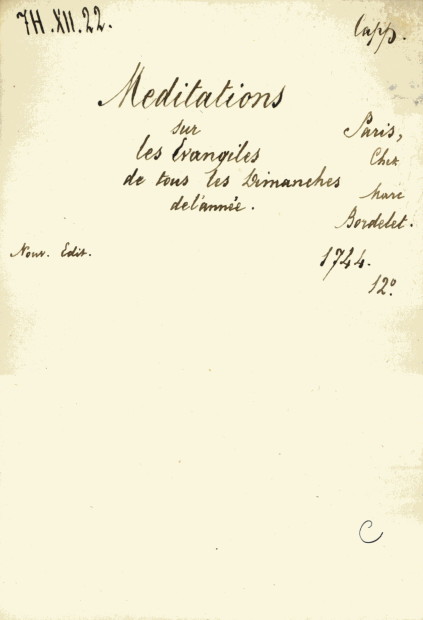 7H.XII.22.
Capp.
Meditations
sur
les Evangiles
de tous les Dimanches
de l'année.
Paris,
Chez
Marc
Bordelet.
Nouv. Edit.
1744.
12º
C